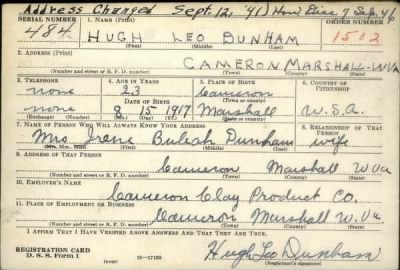 Address Changed Sept. 12, '41)
SERIAL NUMBER 1. NAME (Print) ORDER NUMBER
484 HUGH LEO DUNHAM 1502
(First) (Middle) (Last)
2. ADDRESS (Print)
CAMERON MARSHALL W.VA
(Number and street or R. F. D. number) (Town) (County) (State)
3. TELEPHONE 4. AGE IN YEARS 5. PLACE OF BIRTH 6. COUNTRY OF CITIZENSHIP
none 23 Cameron
DATE OF BIRTH (Town or county)
none 8 15 1917 Marshall U.S.A.
(Exchange) (Number) (Mo.) (Day) (Yr.) (State or country)
7. NAME OF PERSON WHO WILL ALWAYS KNOW YOUR ADDRESS 8. RELATIONSHIP OF THAT PERSON
Mrs Irene Bulah Dunham wife
(Mr., Mrs., Miss) (First) (Middle) (Last)
9. ADDRESS OF THAT PERSON
Cameron Marshall W Va
(Number and street or R. F. D. number) (Town) (County) (State)
10. EMPLOYER'S NAME
Cameron Clay Product Co.
11. PLACE OF EMPLOYMENT OR BUSINESS
Cameron Marshall W. Va
(Number and street or R. F. D. number) (Town) (County) (State)
I AFFIRM THAT I HAVE VERIFIED ABOVE ANSWERS AND THAT THEY ARE TRUE.
REGISTRATION CARD
D. S. S. Form 1 (over) 16-17105
Hugh Leo Dunham
(Registrant's signature)